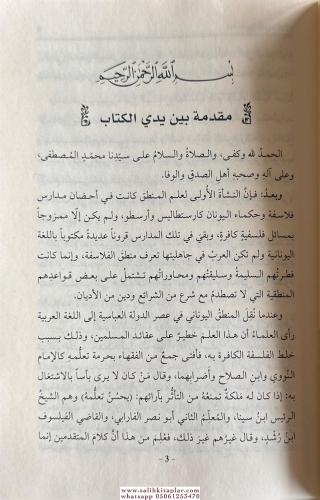 بسم الله الرحمن الرحيم
مقدمة بين يدي الكتاب
الحمدُ لله وكفى، والصلاةُ والسلامُ على سيّدِنا محمّدٍ المصطفى،
وعلى آلِهِ وصحبِهِ أهل الصدق والوفا.
وبعدُ: فإنَّ النشأةَ الأولى لعلم المنطق كانت في أحضان مدارس
فلاسفة وحكماء اليونان كارستطاليس وأرسطو، ولم يكن إلّا ممزوجاً
بمسائل فلسفية كافرةٍ، وبقي في تلك المدارس قروناً عديدةً مكتوباً باللغة
اليونانية ولم تكن العربُ في جاهليتها تعرف منطق الفلاسفة، وإنما كانت
فطرتُهم السليمةُ وسليقتُهم ومحاوراتُهم تشتملُ على بعض قواعدِهم
المنطقية التي لا تصطدمُ مع شرع من الشرائع ودين من الأديان.
وعندما نُقل المنطقُ اليوناني في عصر الدولة العباسية إلى اللغة العربية
رأى العلماءُ أن هذا العلمَ خطيرٌ على عقائد المسلمين، وذلك بسبب
خلط الفلسفة الكافرة به، فأفتى جمعٌ من الفقهاء بحرمة تعلّمه كالإمام
النّووي وابن الصلاح وأضرابهما، وقال مَنْ كان لا يرى بأساً بالاشتغال
به: إذا كان له مَلَكةٌ تمنعُه من التأثّر بآرائهم: (يحسُنُ تعلّمُه) وهم الشيخُ
الرئيس ابنُ سينا، والمُعلّمُ الثاني أبو نصر الفارابي، والقاضي الفيلسوف
ابنُ رُشدٍ، وقال غيرُهم غيرَ ذلك، فعُلِمَ من هذا أنَّ كلامَ المتقدمين إنما
- 3 -
www.salihkitaplar.com
whatsapp 05061253470